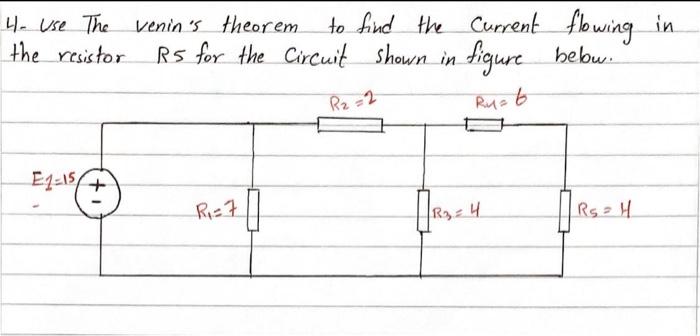 4- Use The venin's theorem to find the Current flowing in
the resistor R5 for the Circuit shown in figure below.
R2=2
R4=6
E1=15
+
-
R1=7
R3=4
R5=4